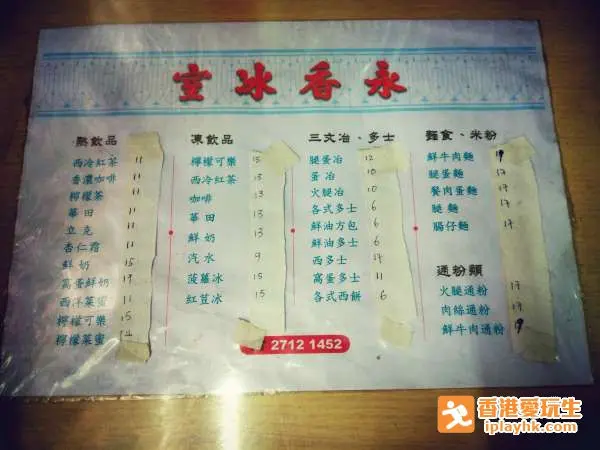 永香冰室
熱飲品
西冷紅茶 11
香濃咖啡 11
檸檬茶 11
華田 11
立克 11
杏仁霜 11
鮮奶 15
窩蛋鮮奶 17
西洋菜蜜 11
檸檬可樂 15
檸檬菜蜜
凍飲品
檸檬可樂 15
西冷紅茶 13
咖啡 13
華田 13
鮮奶 13
汽水 9
菠蘿冰 15
紅荳冰 15
三文冶、多士
腿蛋冶 12
蛋冶 10
火腿冶 10
各式多士 6
鮮油方包 6
鮮油多士 6
西多士 17
窩蛋多士 11
各式西餅 6
麵食、米粉
鮮牛肉麵 19
腿蛋麵 17
餐肉蛋麵 17
腿麵 17
腸仔麵 17
通粉類
火腿通粉 17
肉絲通粉 17
鮮牛肉通粉 19
2712 1452
香港愛玩生
iplayhk.com